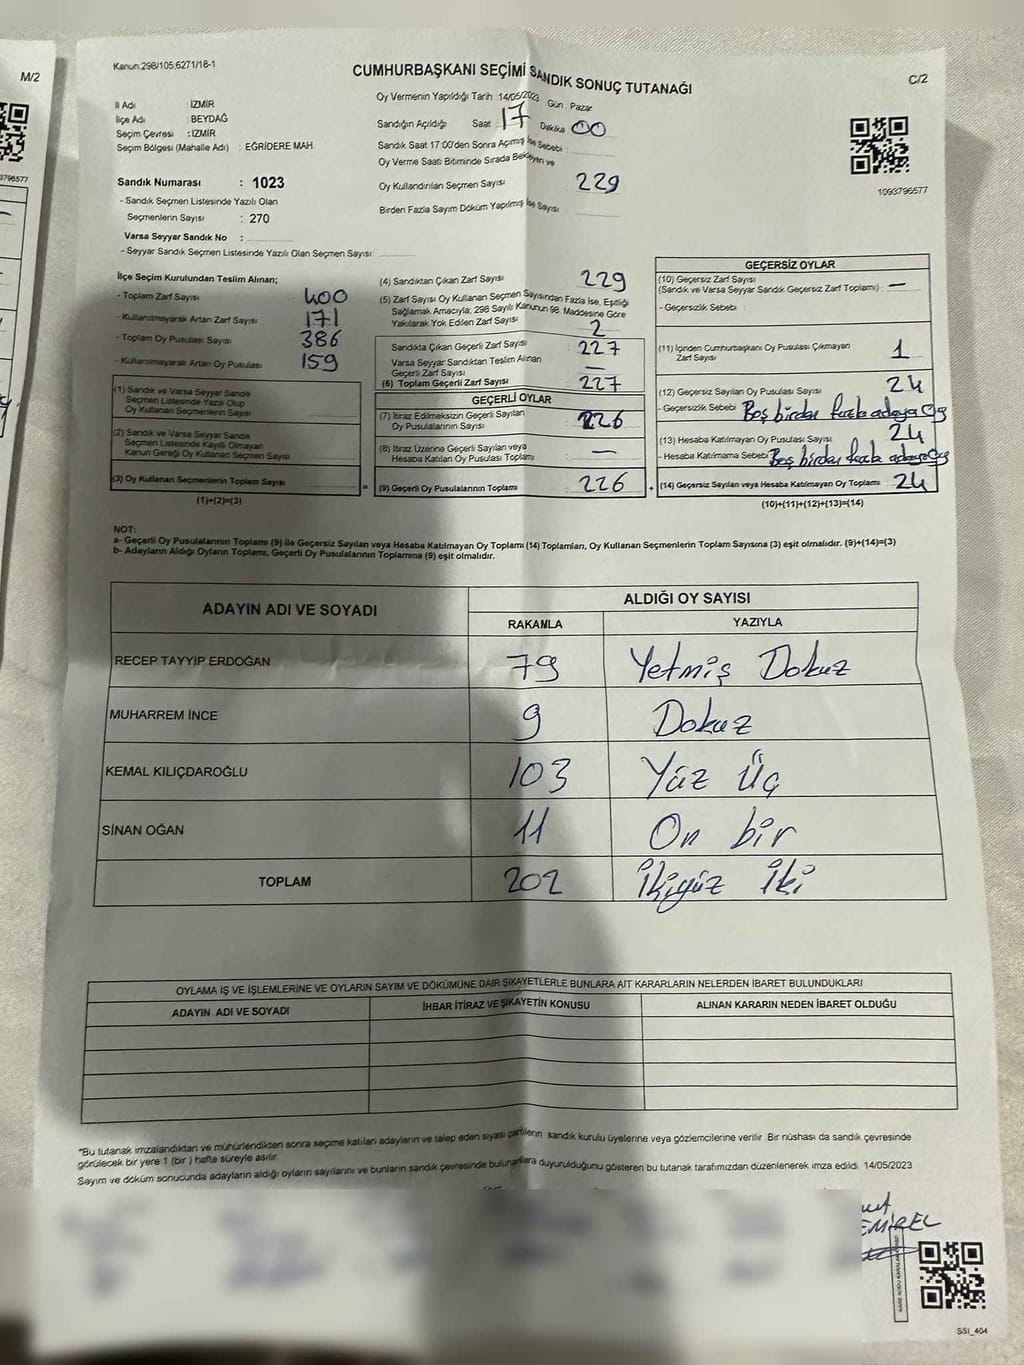 M/2
3796577
Kanun:298/105;6271/18-1
CUMHURBAŞKANI SEÇİMİ SANDIK SONUÇ TUTANAĞI
C/2
İl Adı : İZMİR
İlçe Adı : BEYDAĞ
Seçim Çevresi : İZMİR
Seçim Bölgesi (Mahalle Adı) : EĞRİDERE MAH.
Oy Vermenin Yapıldığı Tarih :14/05/2023 Gün : Pazar
Sandığın Açıldığı Saat : 17 Dakika 00
Sandık Saat 17:00'den Sonra Açılmış İse Sebebi :
Oy Verme Saati Bitiminde Sırada Bekleyen ve
Oy Kullandırılan Seçmen Sayısı 229
Birden Fazla Sayım Döküm Yapılmış İse Sayısı
1093796577
Sandık Numarası : 1023
- Sandık Seçmen Listesinde Yazılı Olan
Seçmenlerin Sayısı : 270
Varsa Seyyar Sandık No :
- Seyyar Sandık Seçmen Listesinde Yazılı Olan Seçmen Sayısı :
İlçe Seçim Kurulundan Teslim Alınan;
- Toplam Zarf Sayısı 400
- Kullanılmayarak Artan Zarf Sayısı 171
- Toplam Oy Pusulası Sayısı 386
- Kullanılmayarak Artan Oy Pusulası 159
(1) Sandık ve Varsa Seyyar Sandık
Seçmen Listesinde Yazılı Olup
Oy Kullanan Seçmenlerin Sayısı
(2) Sandık ve Varsa Seyyar Sandık
Seçmen Listesinde Kayıtlı Olmayan
Kanun Gereği Oy Kullanan Seçmen Sayısı
(3) Oy Kullanan Seçmenlerin Toplam Sayısı
(1)+(2)=(3)
=
(4) Sandıktan Çıkan Zarf Sayısı 229
(5) Zarf Sayısı Oy Kullanan Seçmen Sayısından Fazla İse, Eşitliği
Sağlamak Amacıyla; 298 Sayılı Kanunun 98. Maddesine Göre
Yakılarak Yok Edilen Zarf Sayısı 2
Sandıkta Çıkan Geçerli Zarf Sayısı 227
Varsa Seyyar Sandıktan Teslim Alınan
Geçerli Zarf Sayısı —
(6) Toplam Geçerli Zarf Sayısı 227
GEÇERLİ OYLAR
(7) İtiraz Edilmeksizin Geçerli Sayılan
Oy Pusulalarının Sayısı 226
(8) İtiraz Üzerine Geçerli Sayılan veya
Hesaba Katılan Oy Pusulası Toplamı —
(9) Geçerli Oy Pusulalarının Toplamı 226
GEÇERSİZ OYLAR
(10) Geçersiz Zarf Sayısı
(Sandık ve Varsa Seyyar Sandık Geçersiz Zarf Toplamı) : —
- Geçersizlik Sebebi
(11) İçinden Cumhurbaşkanı Oy Pusulası Çıkmayan
Zarf Sayısı 1
(12) Geçersiz Sayılan Oy Pusulası Sayısı 24
- Geçersizlik Sebebi Boş birden fazla adaya oy
(13) Hesaba Katılmayan Oy Pusulası Sayısı 24
- Hesaba Katılmama Sebebi Boş birden fazla adaya oy
(14) Geçersiz Sayılan veya Hesaba Katılmayan Oy Toplamı : 24
(10)+(11)+(12)+(13)=(14)
NOT:
a- Geçerli Oy Pusulalarının Toplamı (9) ile Geçersiz Sayılan veya Hesaba Katılmayan Oy Toplamı (14) Toplamları, Oy Kullanan Seçmenlerin Toplam Sayısına (3) eşit olmalıdır. (9)+(14)=(3)
b- Adayların Aldığı Oyların Toplamı, Geçerli Oy Pusulalarının Toplamına (9) eşit olmalıdır.
ADAYIN ADI VE SOYADI
ALDIĞI OY SAYISI
RAKAMLA YAZIYLA
RECEP TAYYİP ERDOĞAN 79 Yetmiş Dokuz
MUHARREM İNCE 9 Dokuz
KEMAL KILIÇDAROĞLU 103 Yüz Üç
SİNAN OĞAN 11 On bir
TOPLAM 202 İkiyüz İki
OYLAMA İŞ VE İŞLEMLERİNE VE OYLARIN SAYIM VE DÖKÜMÜNE DAİR ŞİKAYETLERLE BUNLARA AİT KARARLARIN NELERDEN İBARET BULUNDUKLARI
ADAYIN ADI VE SOYADI İHBAR İTİRAZ VE ŞİKAYETİN KONUSU ALINAN KARARIN NEDEN İBARET OLDUĞU
*Bu tutanak imzalandıktan ve mühürlendikten sonra seçime katılan adayların ve talep eden siyasi partilerin sandık kurulu üyelerine veya gözlemcilerine verilir. Bir nüshası da sandık çevresinde
görülecek bir yere 1 (bir) hafta süreyle asılır.
Sayım ve döküm sonucunda adayların aldığı oyların sayılarını ve bunların sandık çevresinde bulunanlara duyurulduğunu gösteren bu tutanak tarafımızdan düzenlenerek imza edildi. 14/05/2023
EMİREL
SSI_404